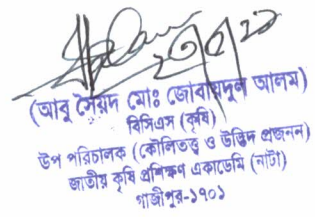 (আবু সৈয়দ মোঃ জোবায়দুল আলম)
বিসিএস (কৃষি)
উপ পরিচালক (কৌলিতত্ত্ব ও উদ্ভিদ প্রজনন)
জাতীয় কৃষি প্রশিক্ষণ একাডেমি (নাটা)
গাজীপুর-১৭০১